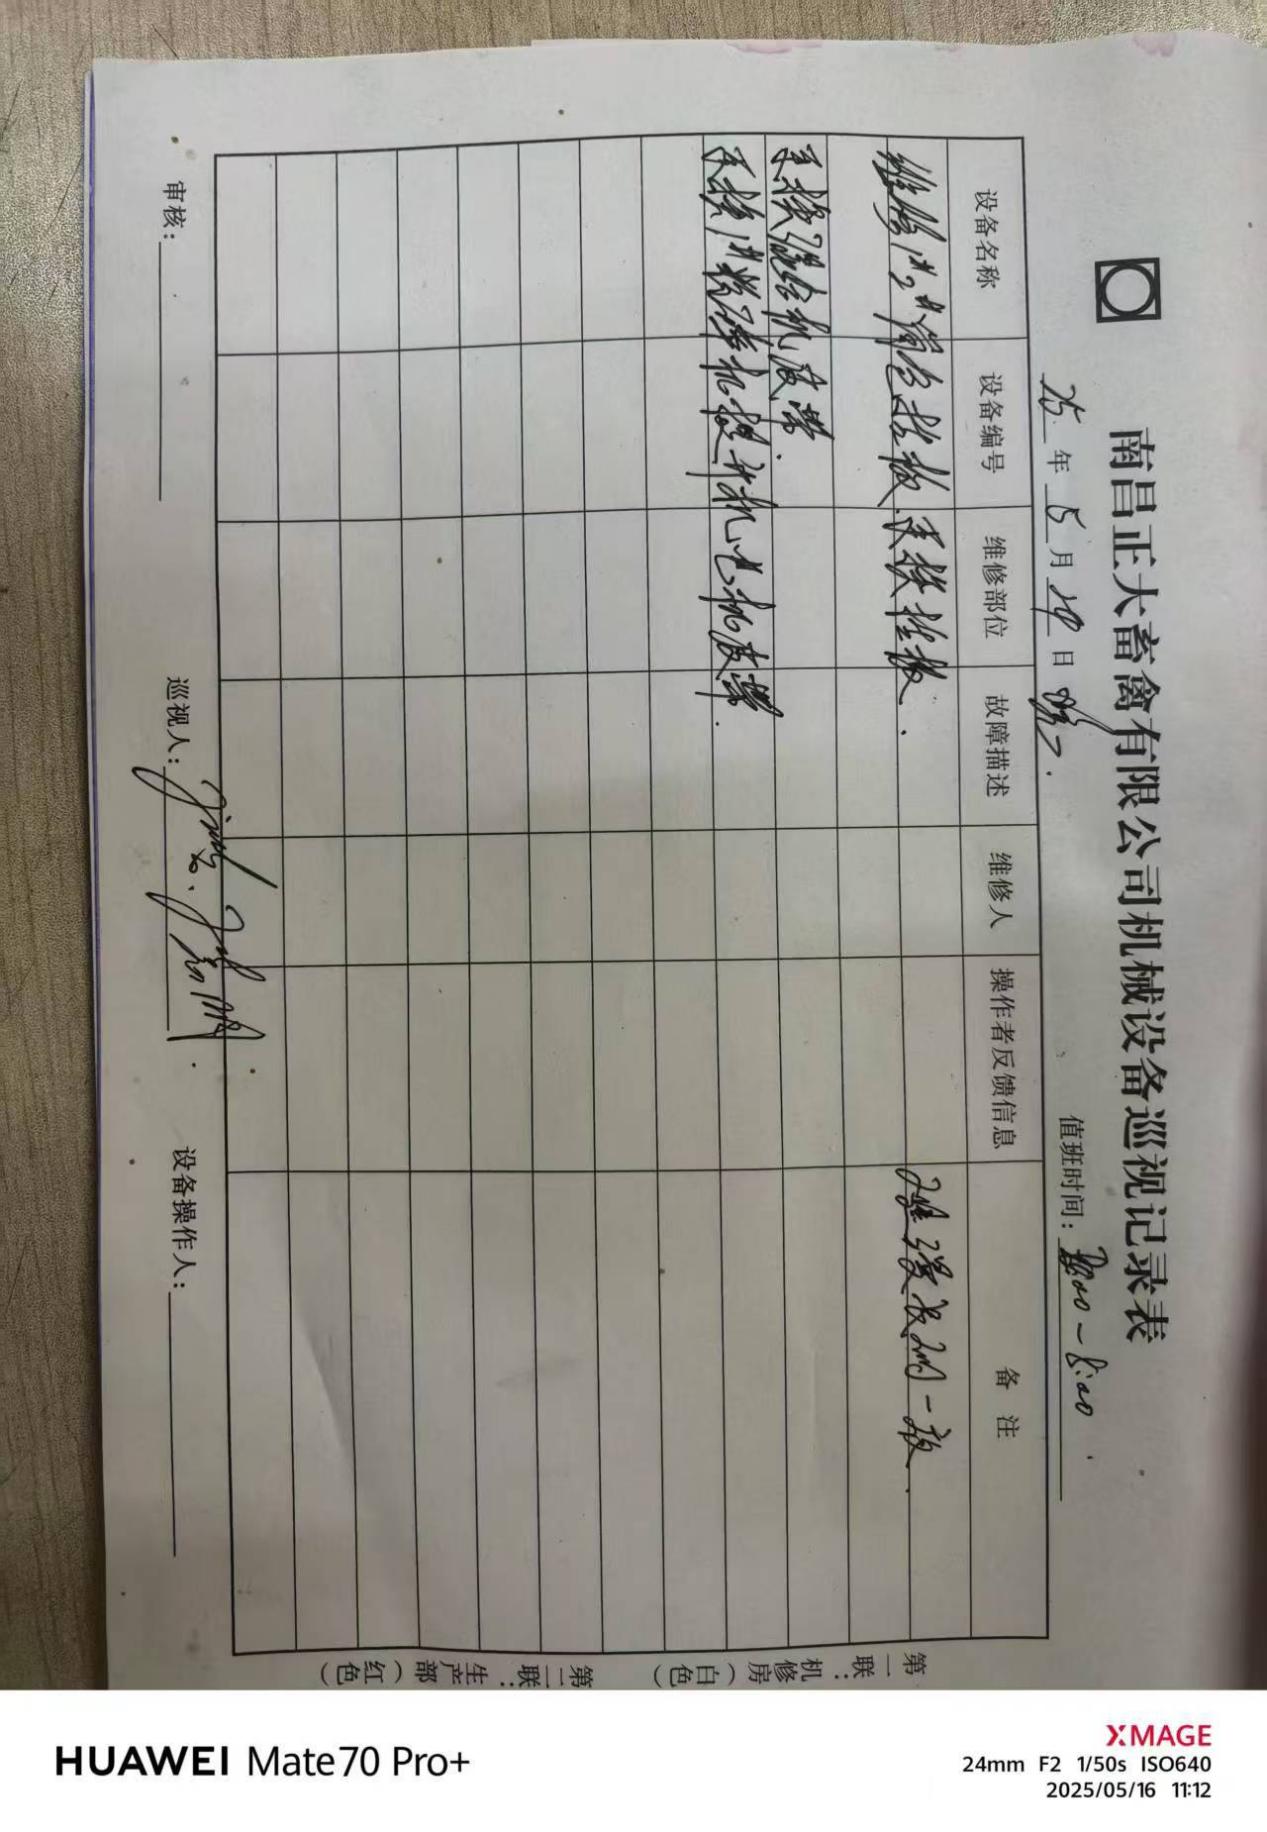 南昌正大畜禽有限公司机械设备巡视记录表
25 年 5 月 日 值班时间: -8:00
设备名称 设备编号 维修部位 故障描述 维修人 操作者反馈信息 备 注
维修1#2# 包 板.更换 板.
更换混合机皮带.
更换1#粉碎机提升机电机皮带.
审核: 巡视人: 设备操作人:
第一联:机修房(白色)
第二联:生产部(红色)
HUAWEI Mate70 Pro+
XMAGE
24mm F2 1/50s ISO640
2025/05/16 11:12